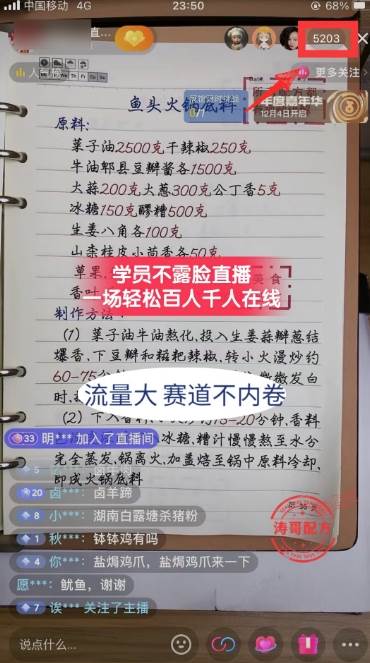 中国移动 4G
23:50
68%
直...
5203
人气榜
更多关注
年度嘉年华
12月4日开启
0/7
鱼头火锅底料
原料:
菜子油2500克干辣椒250克
牛油郫县豆瓣酱各1500克
大蒜200克大葱300克公丁香5克
冰糖150克醪糟500克
生姜八角各100克
山柰桂皮小茴香各50克
草果,
香叶
美食
学员不露脸直播
一场轻松百人千人在线
制作方法:
(1) 菜子油牛油熬化,投入生姜蒜瓣葱结
爆香,下豆瓣和糍粑辣椒,转小火漫炒约
60-75分
微微发白
时,
流量大 赛道不内卷
(2) 下入香料
15-20分钟,香料
33 明*** 加入了直播间
冰糖,糟汁慢慢熬至水分
完全蒸发,锅离火,加盖焐至锅中原料冷却,
即成火锅底料
20 卤***: 卤羊蹄
8 小***: 湖南白露塘杀猪粉
1 秋***: 钵钵鸡有吗
4 你***: 盐焗鸡爪,盐焗鸡爪来一下
愿***: 鱿鱼,谢谢
7 诶*** 关注了主播
第 36 页
涛哥配方
说点什么...